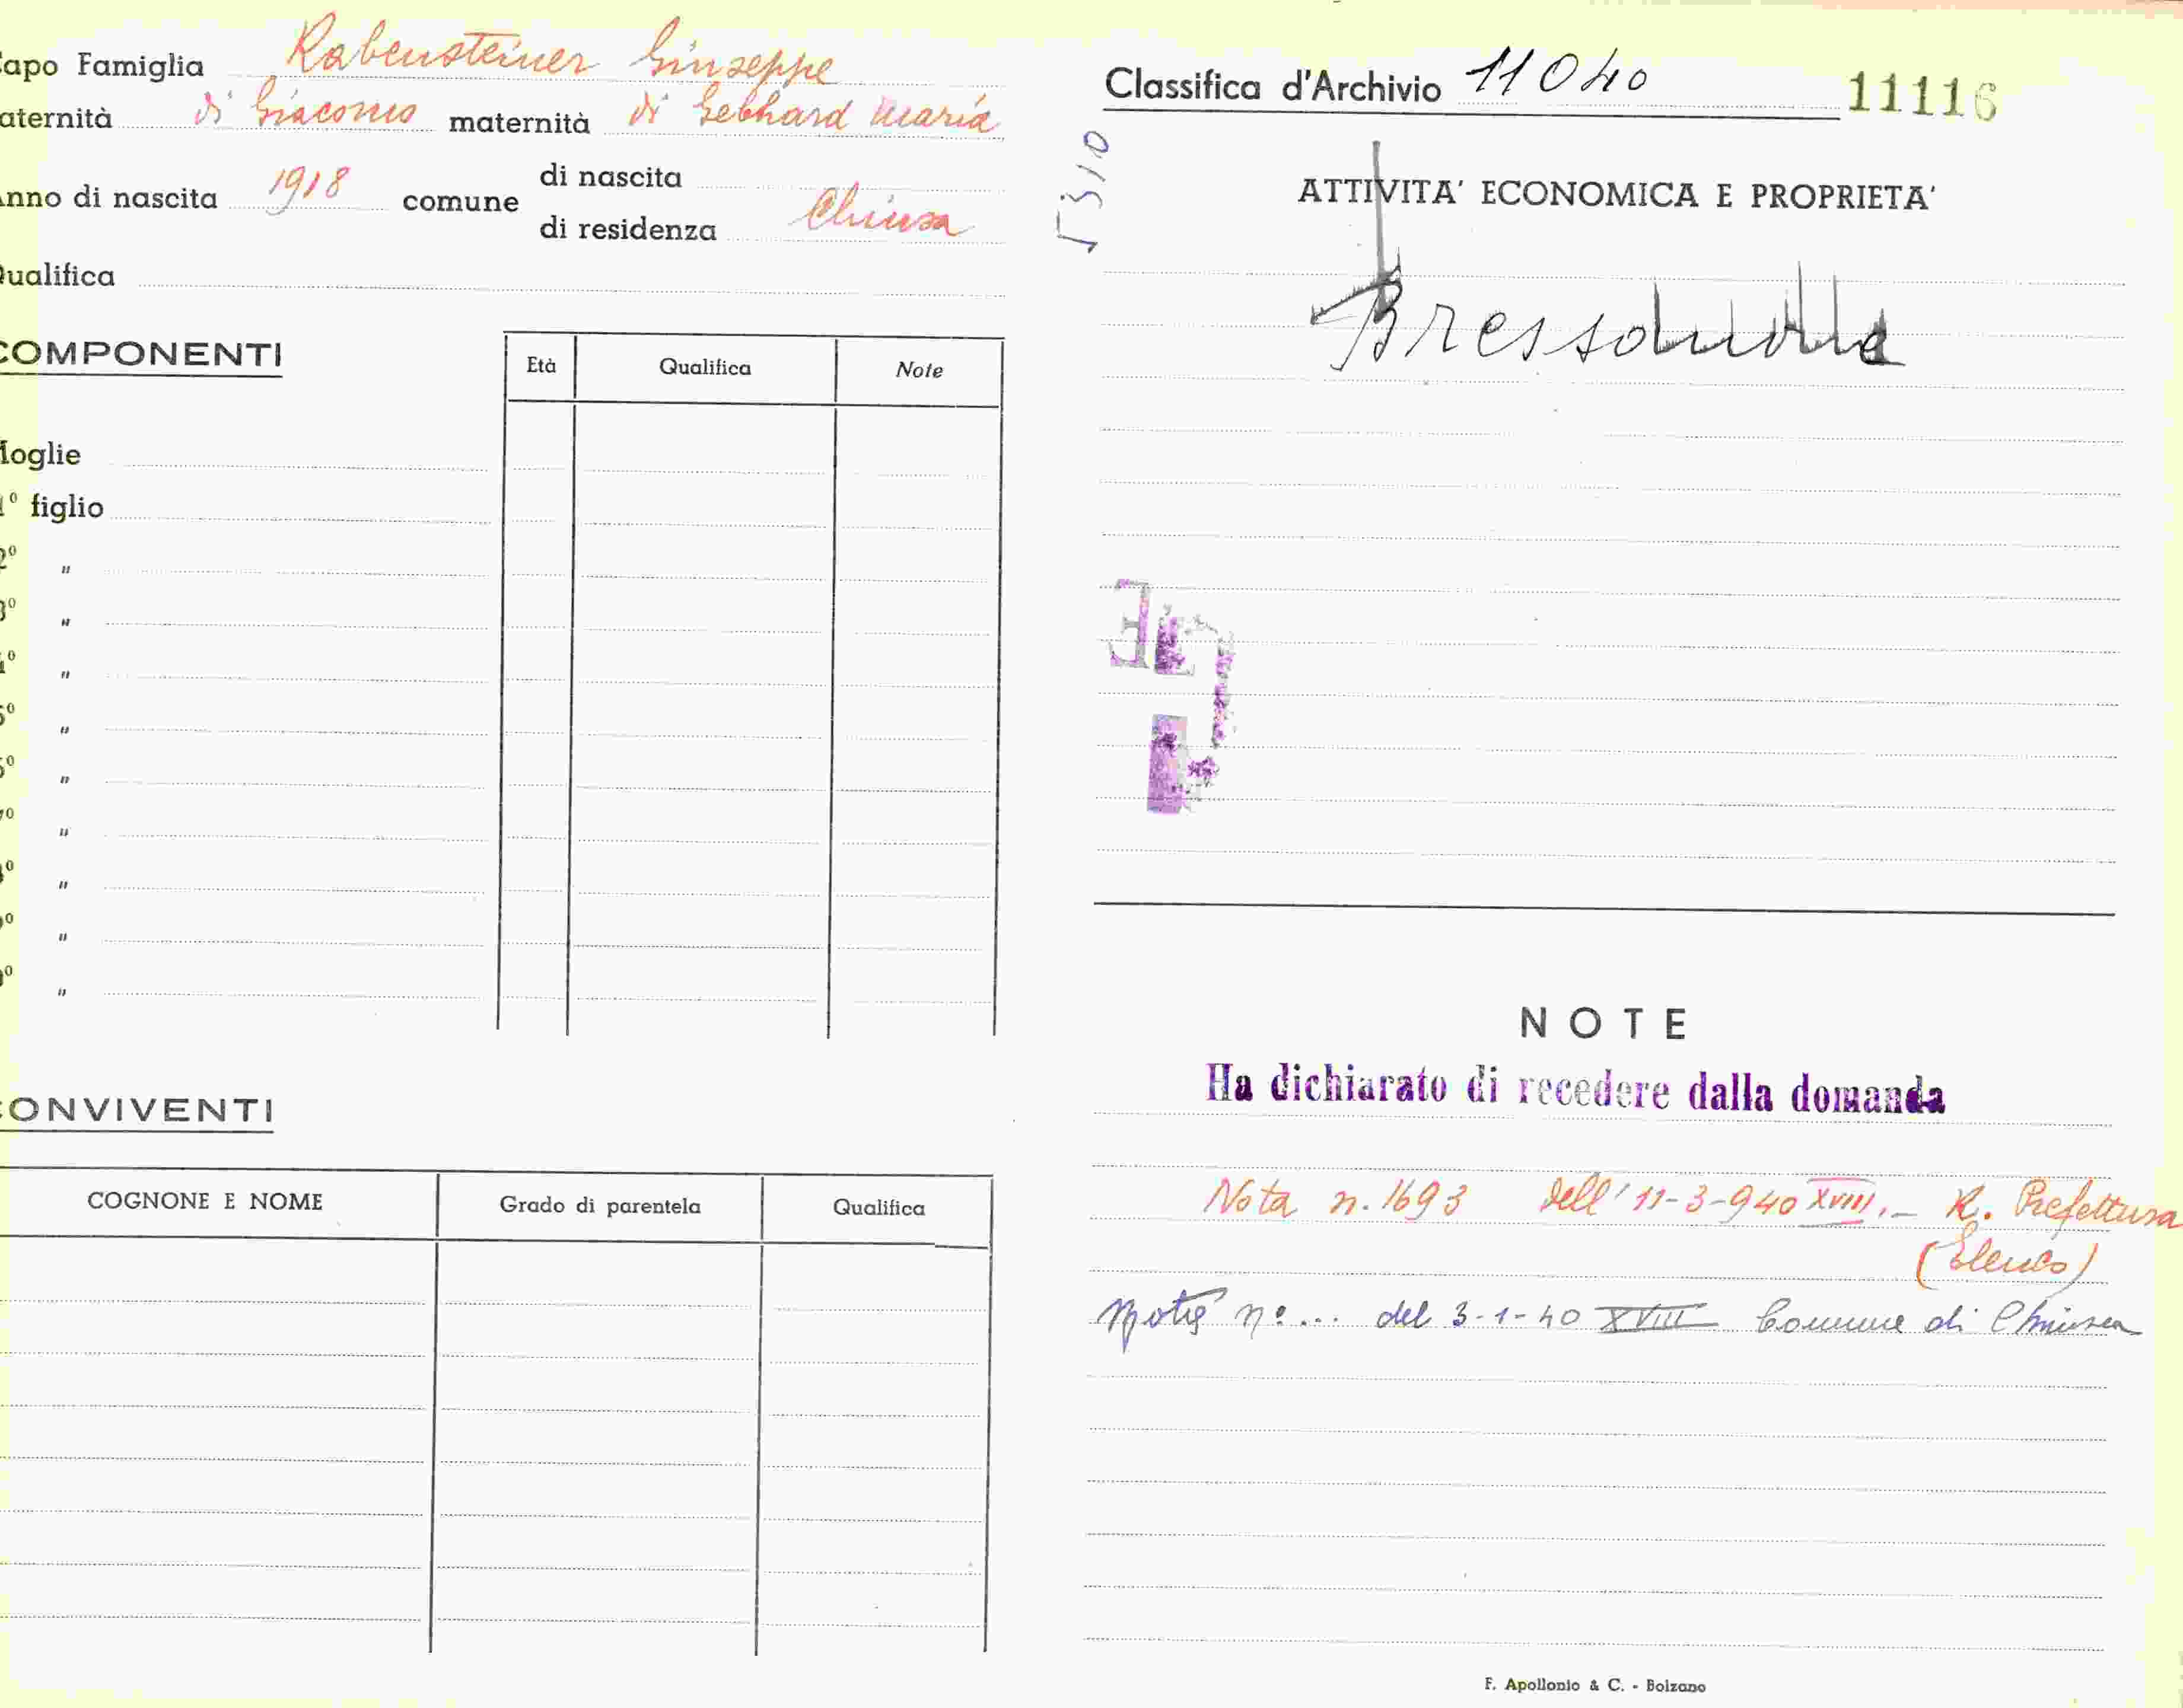 apo Famiglia Rabensteiner Giuseppe
aternità di Giacomo maternità di Gebhard Maria
nno di nascita 1918 comune di nascita
di residenza Chiusa
ualifica
COMPONENTI
Età Qualifica Note
oglie
1º figlio
2º "
3º "
4º "
5º "
6º "
7º "
8º "
9º "
0º "
CONVIVENTI
COGNONE E NOME Grado di parentela Qualifica
Classifica d'Archivio 11040 11116
5310
ATTIVITA' ECONOMICA E PROPRIETA'
NOTE
Ha dichiarato di recedere dalla domanda
Nota n. 1693 dell' 11-3-940 XVIII. - R. Prefettura
(Elenco)
nº ... del 3-1-40 XVIII Comune di Chiusa
F. Apollonio & C. - Bolzano